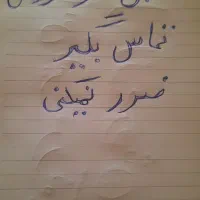 تماس بگیر
ضرر نمیکنی